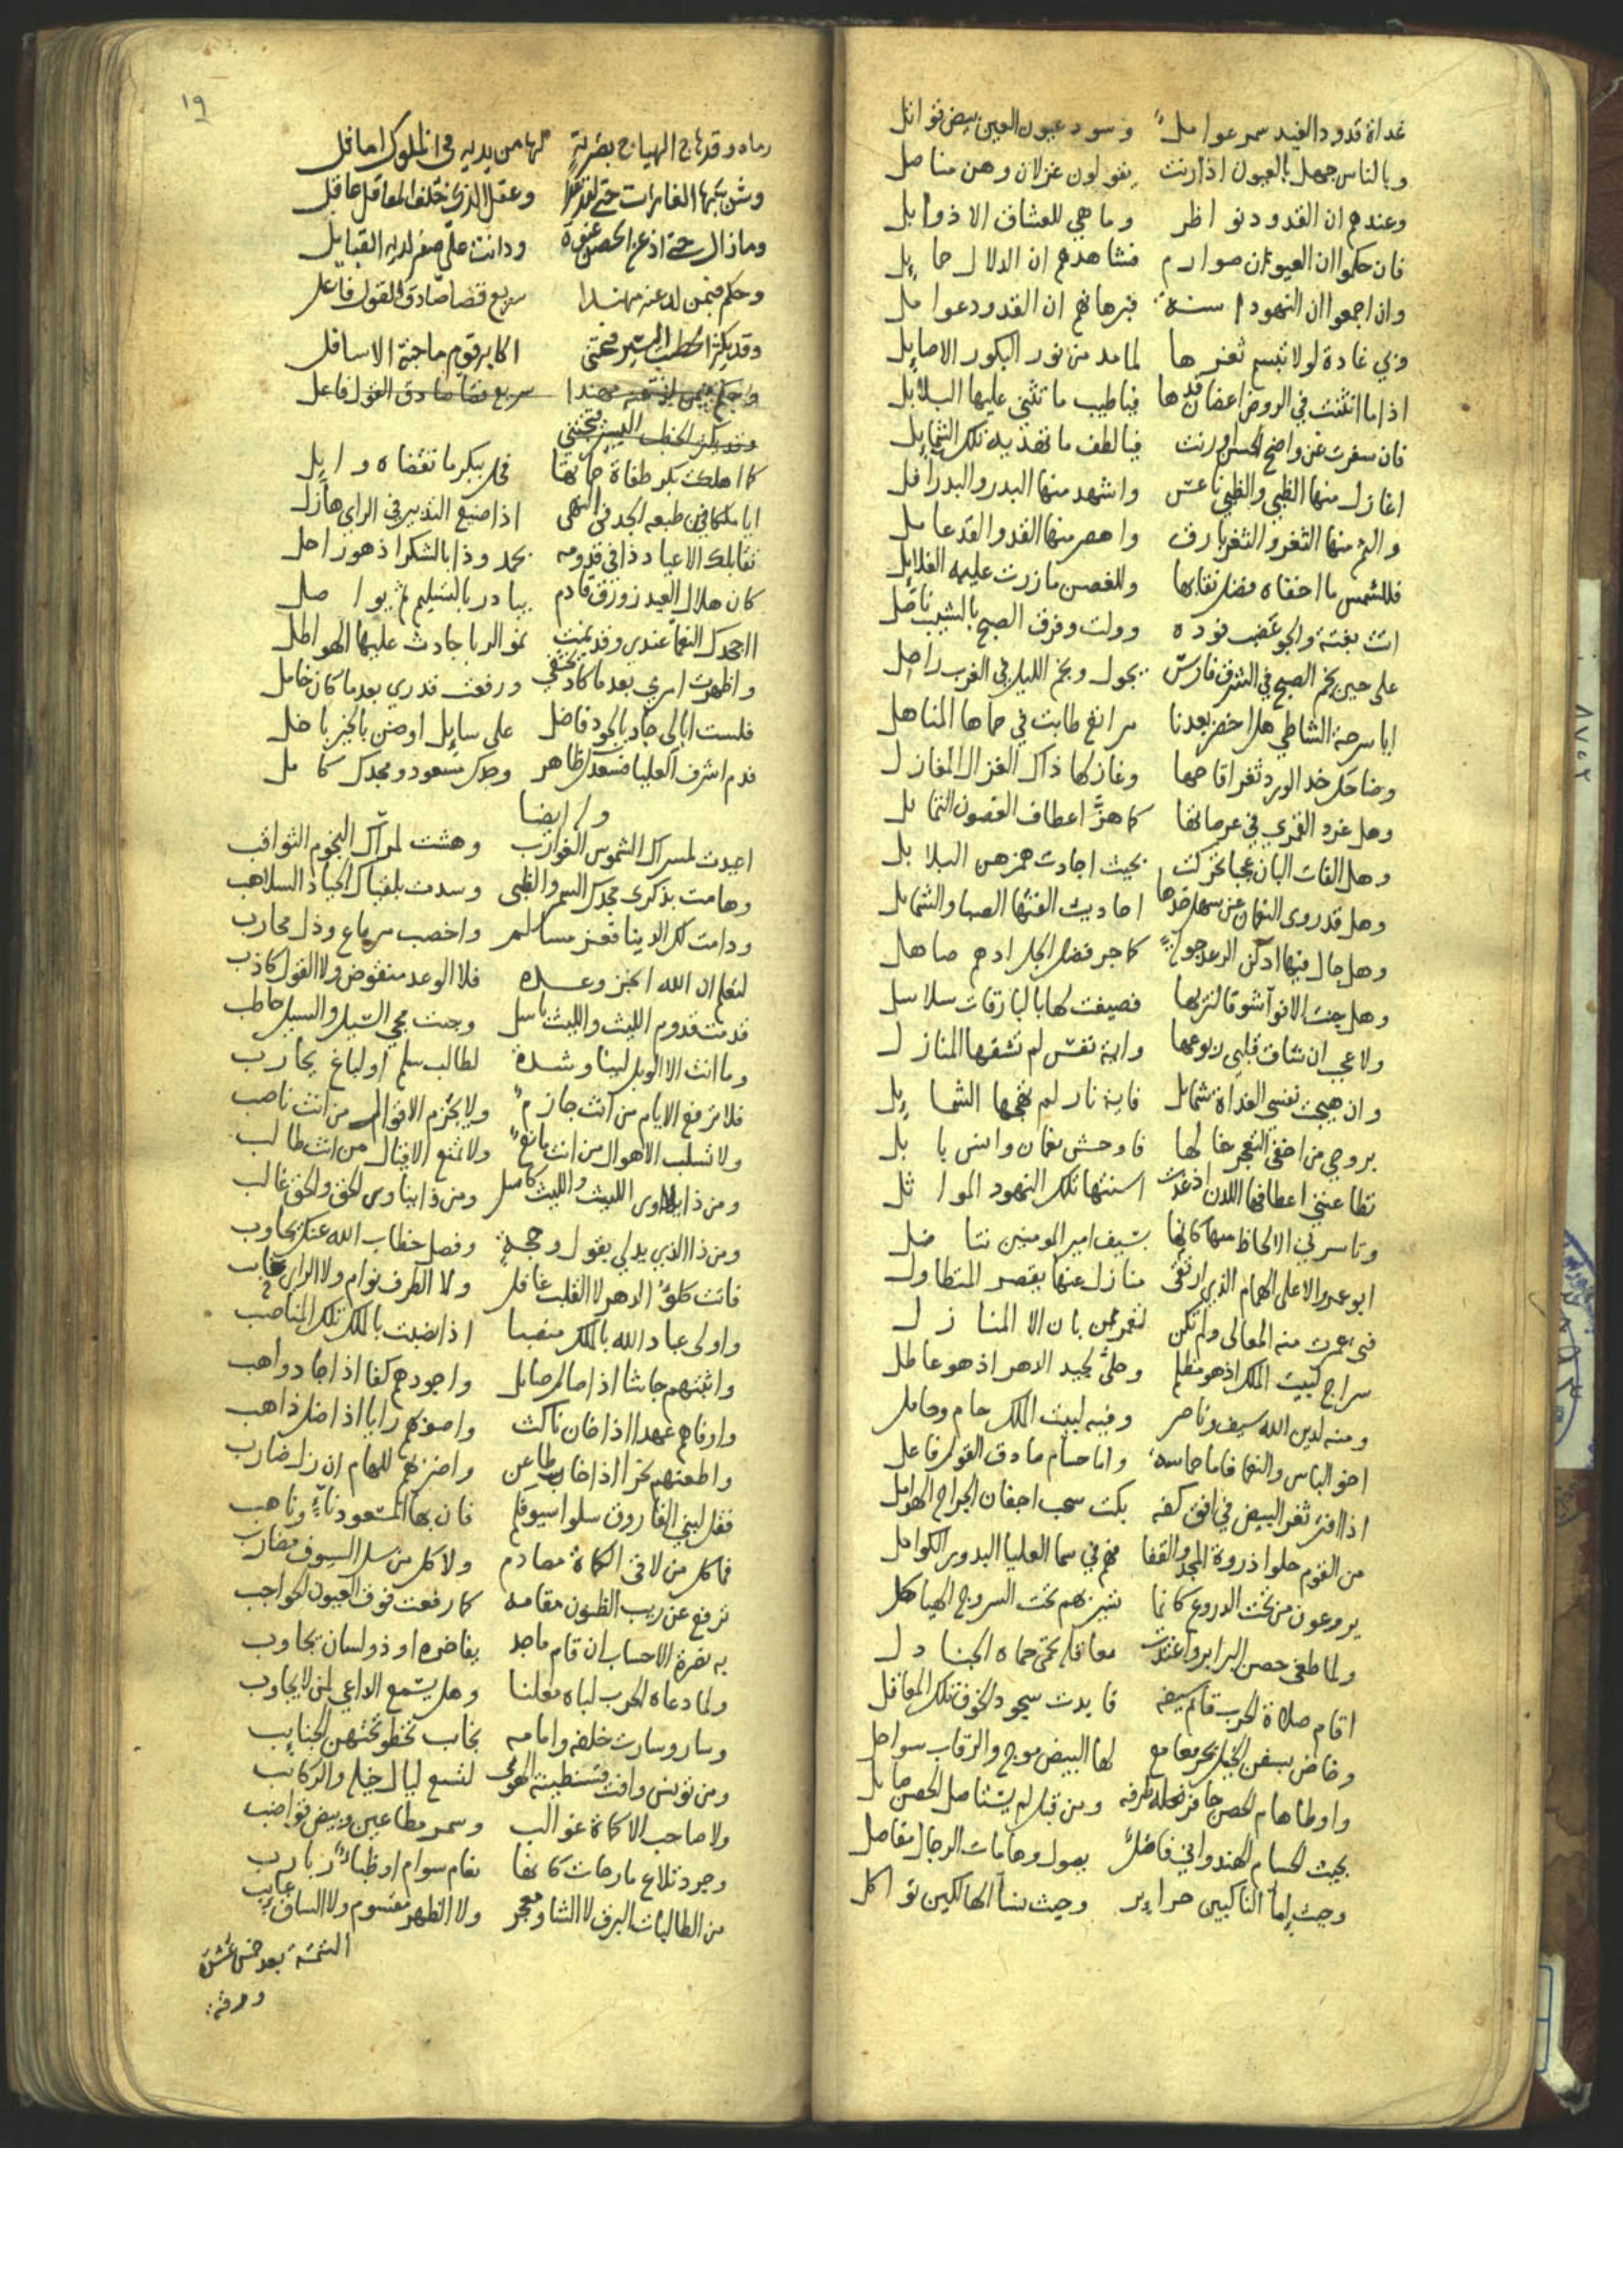 غداة قدود الغيد سمر عوامل وسود عيون العين بيض قواتل
وبالناس جهل بالعيون اذا رنت يقولون غزلان وهن مناصل
وعندهم ان القدود نواظر وما هي للعشاق الا ذوابل
فان حكموا ان العيون صوارم فشاهدهم ان الدلال حمايل
وان اجمعوا ان النهود اسنة فبرهانهم ان القدود عوامل
وبي غادة لولا تبسم ثغرها لما مد من نور البكور الاصايل
اذا ما انثنت في الروض اغصان قدها فيا طيب ما تثني عليها البلابل
فان سفرت عن واضح الحسن ورنت فيا لطف ما تفديه تلك الشمايل
اغازل منها الظبي والظبي ناعس واشهد منها البدر والبدر افل
والثم منها الثغر والثغر بارق واهصر منها القد والقد عامل
فللشمس ما اخفاه فضل نقابها وللغصن ما زرت عليه الغلايل
اتت بغتة والجو غيهب فوده وولت وفرق الصبح بالشيب ناصل
على حين نجم الصبح في الشرق فارس يجول ونجم الليل في الغرب راحل
ايا سرحة الشاطي هل اخضر بعدنا مراتع طابت في حماها المناهل
وضاحك خد الورد ثغر اقاحها وغازلها ذاك الغزال المغازل
وهل غرد القمري في عرصاتها كما هز اعطاف الغصون الشمايل
وهل الفات البان عجبا تحركت بحيث اجادت همزهن البلابل
وهل قد روى النعمان عن سهل خدها احاديث الفتها الصبا والشمايل
وهل جال فيها ادكن الرعد جولة كما جر فضل الجل ادهم صاهل
وهل جنت الانواء شوقا لتربها فصيغت لها بالبارقات سلاسل
ولا عجب ان شاق قلبي ربوعها واية نفس لم تشقها المنازل
وان هيجت نفسي الغداة شمايل فاية نار لم تهجها الشمايل
بروحي من اخفى التفجر خالها فاوحش نعمان وانس بابل
تطاعنني اعطافها اللدن اذ غدت اسنتها تلك النهود المواثل
وتاسرني الالحاظ منها كانها بسيف امير المومنين تناضل
ابو عمر الاعلى الهمام الذي ارتقى منازل عنها يقصر المتطاول
فتى عمرت منه المعالي ولم تكن لتعمر ممن بان الا المنازل
سراج لبيت الملك اذ هو مظلم وحلي لجيد الدهر اذ هو عاطل
ومنه لدين الله سيف وناصر وفيه لبيت الملك حام وحامل
اخو الباس والنعما فاما حماسة واما حسام صادق القول فاعل
اذا افتر ثغر البيض في افق كفه بكت سحب اجفان الجراح الهوامل
من القوم حلوا ذروة المجد والقفا فهم في سما العليا البدور الكوامل
يروعون من تحت الدروع كانما تبيزهم تحت السروج الهياكل
ولما طغى حصن البرابر واعتدت معاقله تحمى حماه الجنادل
اقام صلاة الحرب قايم سيفه فابدت سجود الخوف تلك المعاقل
وخاض بسفن الخيل بحر معامع لها البيض موج والرقاب سواحل
واوطا هام الحصن حافر طرفه ومن قبل لم يستاصل الحصن حابل
بحيث الحسام الهندواني فاضل يصول وهامات الرجال مفاصل
وحيث اماء الناكبين حراير وحيث نساء الهالكين ثواكل
١٩
رماه وقد هاج الهياج بضربة لها من يديه في الملوك اماثل
وشن بكبرها الغارات حتى لقد غدا وعقل الذي خلف المعاقل عاقل
وما زال حتى اذعن الحصن عنوة ودانت على صغر لديه القبايل
وحكم فيمن لد عنه مهندا سريع قضا صادق القول فاعل
وقد يكثر الخطب اليسير فيجتني اكابر قوم ما جنته الاسافل
وحكم فيمن لد عنه مهندا سريع قضا صادق القول فاعل
وقد يكثر الخطب اليسير فيجتني
كما اهلكت بكر طغاة حماتها فحل ببكر ما تقضاه وايل
ايا ملكا في طبعه الجد في النهى اذا ضيع التدبير في الراي هازل
تقابلك الاعياد ذا في قدومه بحمد وذا بالشكر اذ هو راحل
كان هلال العيد زورق قادم يبادر بالتسليم ثم يواصل
ااجحدك النعما عندي وقد نمت نمو الربا جادت عليها الهواطل
واظهرت امري بعد ما كاد يختفي ورفعت قدري بعد ما كان خامل
فلست ابالي جاد بالجود فاضل على سايل او ضن بالخير باخل
فدم اشرف العليا فسعدك ظاهر وجدك مسعود ومجدك كامل
وله ايضا
اعيدت لمسراك الشموس الغوارب وهشت لمرآك النجوم الثواقب
وهامت بذكرى مجدك السمر والظبى وسدت بلقياك الجياد السلاهب
ودامت لك الدنيا فعز مسالم واخصب مرباع وذل محارب
لتعلم ان الله انجز وعده فلا الوعد منقوض ولا القول كاذب
قدمت قدوم الليث والليث باسل وجيت مجي السيل والسيل حاطب
وما انت الا الوبل لينا وشدة لطالب سلم او لباغ يحارب
فلا ترفع الايام من انت جازم ولا يجزم الاقوال من انت ناصب
ولا تسلب الاهوال من انت مانع ولا تمنع الاقيال من انت طالب
ومن ذا يناوى الليث والليث كاسر ومن ذا يناوى الحق والحق غالب
ومن ذا الذي يدلي بقول وحجة وفصل خطاب الله عنك يجاوب
فانت كلؤ الدهر لا القلب غافل ولا الطرف نوام ولا الراي غايب
واولى عباد الله بالملك منصبا اذا نصبت بالملك تلك المناصب
واثبتهم جاشا اذا صال صايل واجودهم كفا اذا جاد واهب
واوفاهم عهدا اذا خان ناكث واصوبهم رايا اذا ضل ذاهب
واطعنهم نحرا اذا خام طاعن واضربهم للهام ان زل ضارب
فقل لبني الفاروق سلوا سيوفكم فان بها المسعود ناء وناهب
فما كل من لاقى الكماة مصادم ولا كل من سل السيوف مضارب
ترفع عن ريب الظنون مقامه كما رفعت فوق العيون الحواجب
به نضرة الاحساب ان قام ماجد يفاخره او ذو لسان يجاوب
ولما دعاه الحرب لباه معلنا وهل يسمع الداعي لمن لا يجاوب
وسار وسارت خلفه وامامه نجاب تخطو تحتهن الجنايب
ومن تونس وافت قسنطينة الهوى لتسع ليال خيله والركايب
ولا صاحب الا كماة غوالب وسمر مطاعين وبيض قواضب
وجرد تلاع مارحات كانها نعام سوام او ظباء ربارب
من الطالبات البرق لا الشاو معجز ولا الظهر مقسوم ولا الساق عايب
التتمة بعد خمس عشرة
ورقة